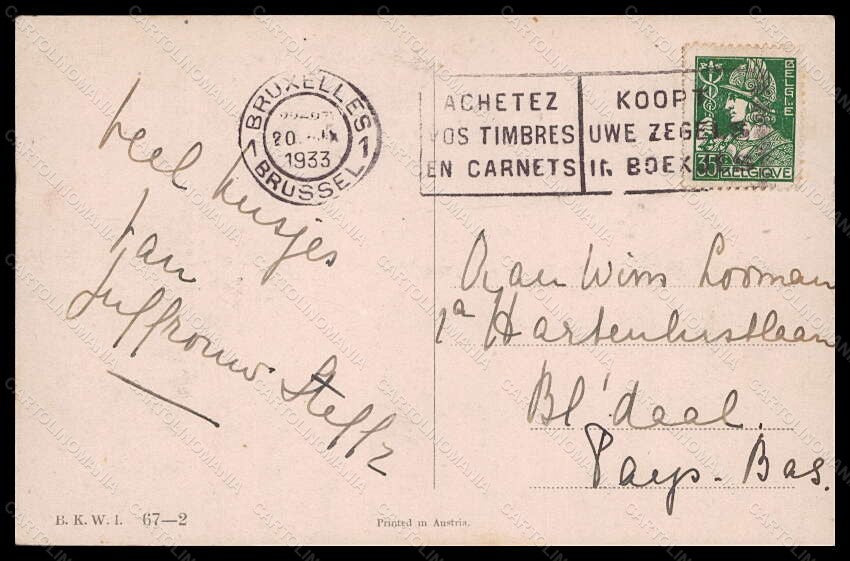 BRUXELLES 1
20.
1933
BRUSSEL
ACHETEZ
VOS TIMBRES
EN CARNETS
KOOPT
UWE ZEGELS
IN BOEK
BELGIE
35
BELGIQVE
Veel kusjes
van
Juffrouw Steffz
Wim Looman
1a Hartenlustlaan
Bl'daal.
Pays-Bas.
B. K. W. I. 67—2
Printed in Austria.
CARTOLINOMANIA